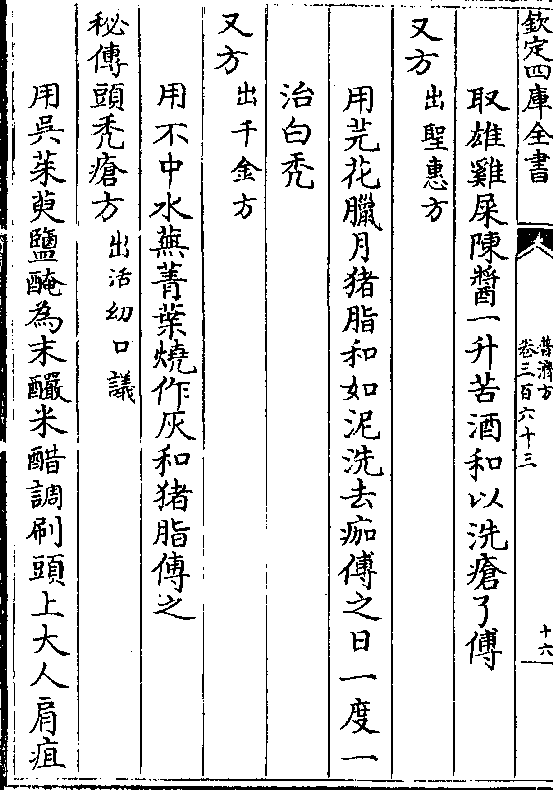 欽定四庫全書
普濟方
卷三百六十三
十六
取雄雞屎陳醬一升苦酒和以洗瘡了傅
又方出聖惠方
用芫花臘月猪脂和如泥洗去痂傅之日一度一
治白禿
又方出千金方
用不中水蕪菁葉燒作灰和猪脂傅之
秘傳頭禿瘡方出活幼口議
用吳茱萸鹽醃為末釅米醋調刷頭上大人肩疽